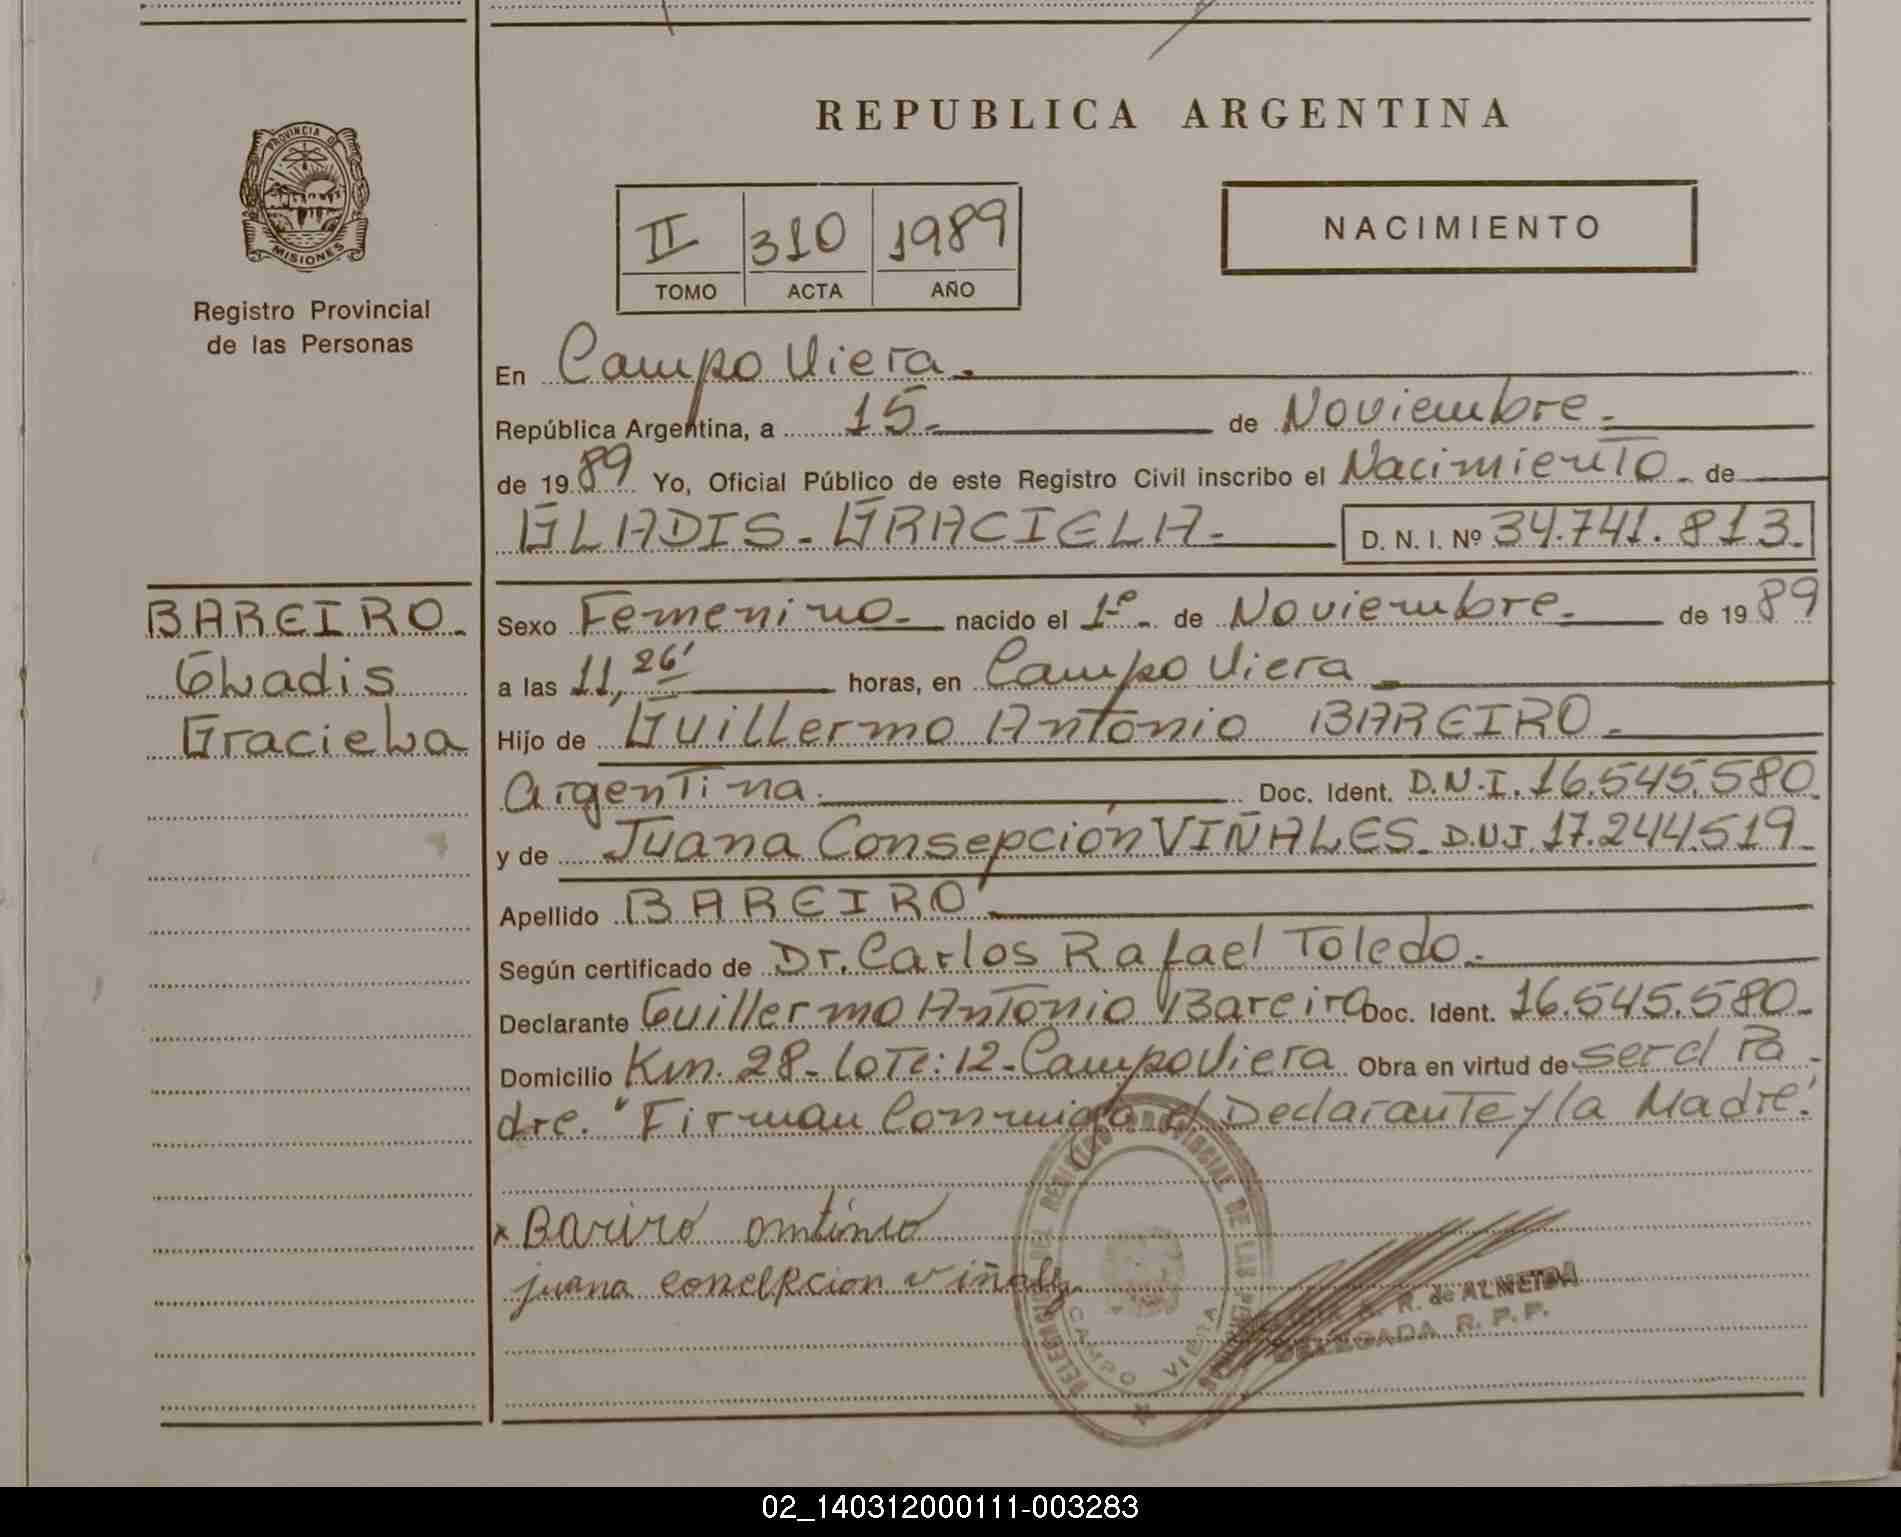 REPUBLICA ARGENTINA
PROVINCIA DE
MISIONES
Registro Provincial
de las Personas
II 310 1989
TOMO ACTA AÑO
NACIMIENTO
En Campo Viera.
República Argentina, a 15 de Noviembre.
de 1989 Yo, Oficial Público de este Registro Civil inscribo el Nacimiento de
GLADIS - GRACIELA - D. N. I. Nº 34.741.813.
BAREIRO.
Gladis
Graciela
Sexo Femenino nacido el 1º de Noviembre. de 1989
a las 11,26' horas, en Campo Viera
Hijo de Guillermo Antonio BAREIRO.
Argentina. Doc. Ident. D.N.I. 16.545.580.
y de Juana Consepción VIÑALES. D.N.I. 17.244.519.
Apellido BAREIRO
Según certificado de Dr. Carlos Rafael Toledo.
Declarante Guillermo Antonio Bareiro Doc. Ident. 16.545.580.
Domicilio Km. 28 - Lote: 12 - Campo Viera Obra en virtud de ser el Pa
dre. "Firman Conmigo el Declarante y la Madre."
x Bariro
juana
R. de ALMEIDA
DELEGADA R. P. P.
CAMPO VIERA
02_140312000111-003283